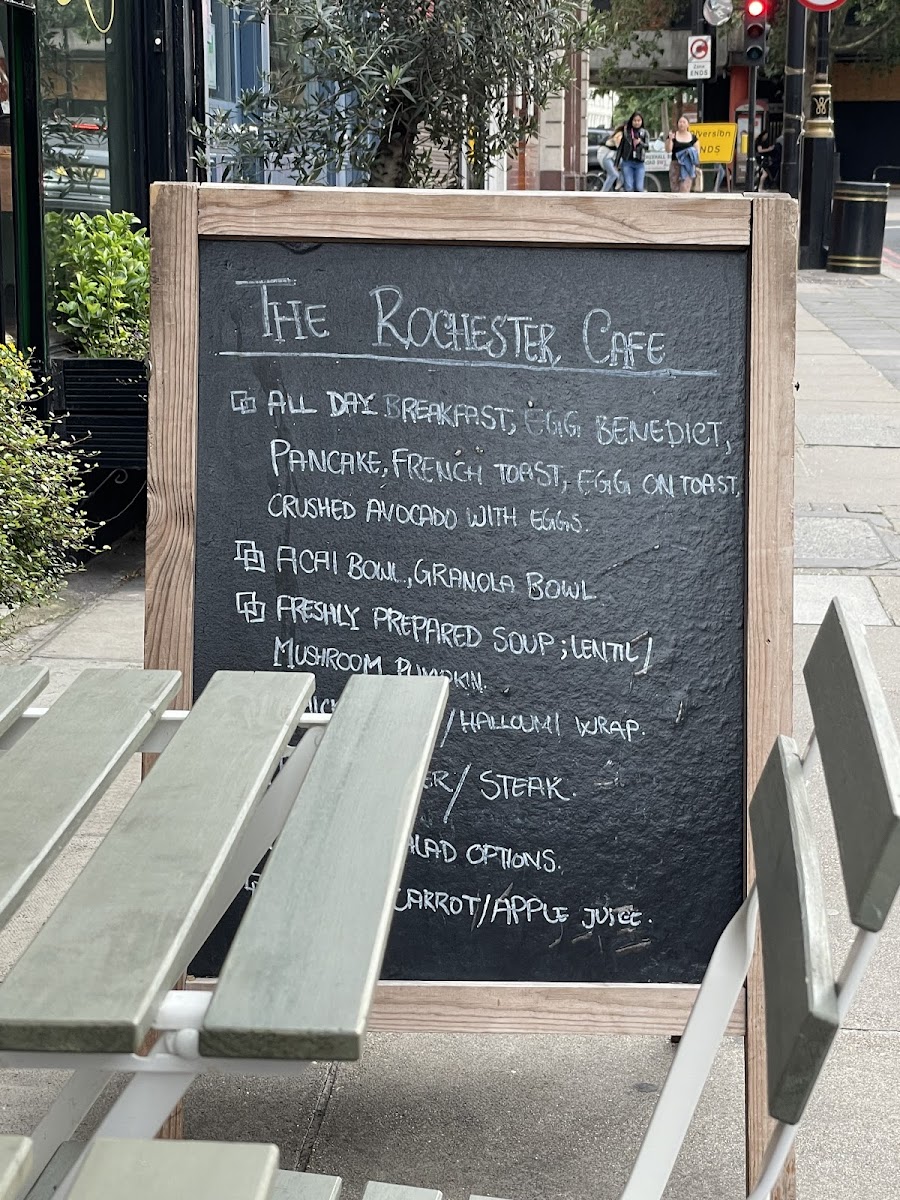 Zone
ENDS
Diversion
ENDS
THE ROCHESTER CAFE
ALL DAY BREAKFAST, EGG BENEDICT,
PANCAKE, FRENCH TOAST, EGG ON TOAST,
CRUSHED AVOCADO WITH EGGS.
ACAI BOWL, GRANOLA BOWL
FRESHLY PREPARED SOUP; LENTIL/
MUSHROOM PUMPKIN.
/HALLOUMI WRAP.
/ STEAK.
OPTIONS.
CARROT/APPLE JUICE.